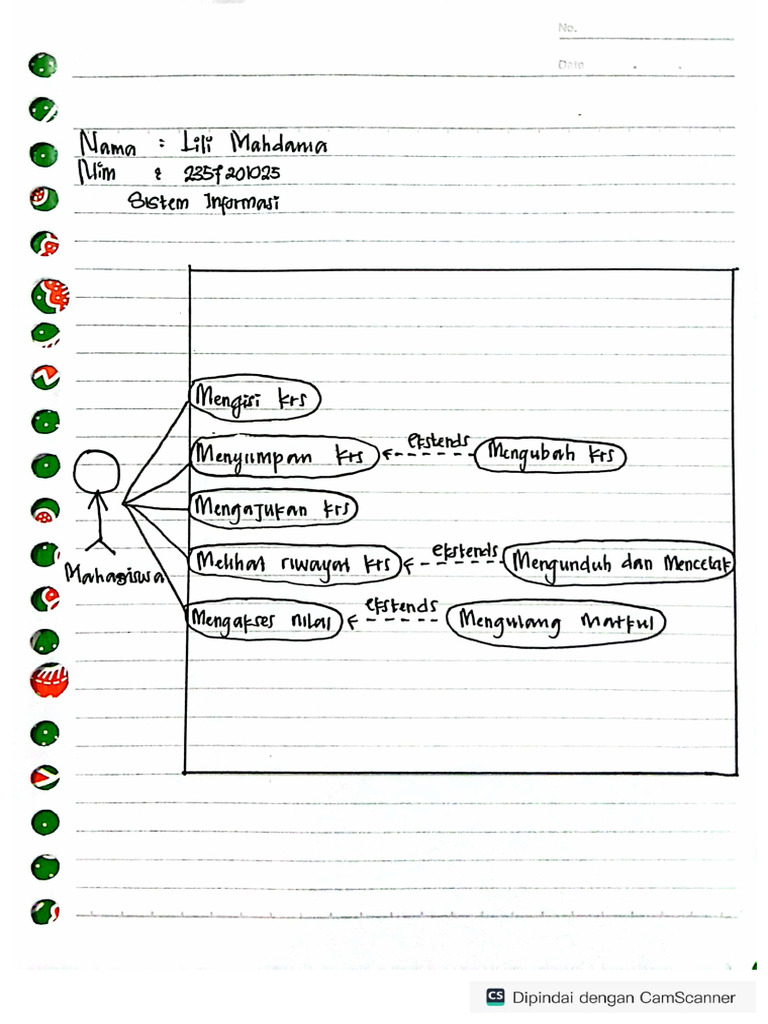 No.
Date
Nama : Lili Mahdama
Nim : 2357201025
Sistem Informasi
Mengisi krs
Menyimpan krs
ekstends
Mengubah krs
Mengajukan krs
Melihat riwayat krs
ekstends
Mengunduh dan Mencetak
Mahasiswa
Mengakses nilai
ekstends
Mengulang Matkul
CS Dipindai dengan CamScanner